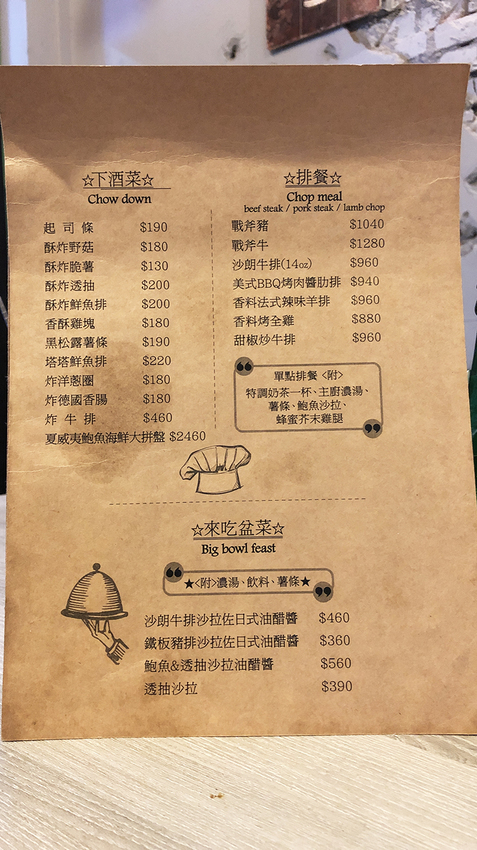 ☆下酒菜☆
Chow down
起司條 $190
酥炸野菇 $180
酥炸脆薯 $130
酥炸透抽 $200
酥炸鮮魚排 $200
香酥雞塊 $180
黑松露薯條 $190
塔塔鮮魚排 $220
炸洋蔥圈 $180
炸德國香腸 $180
炸牛排 $460
夏威夷鮑魚海鮮大拼盤 $2460
☆排餐☆
Chop meal
beef steak / pork steak / lamb chop
戰斧豬 $1040
戰斧牛 $1280
沙朗牛排(14oz) $960
美式BBQ烤肉醬肋排 $940
香料法式辣味羊排 $960
香料烤全雞 $880
甜椒炒牛排 $960
單點排餐 <附>
特調奶茶一杯、主廚濃湯、
薯條、鮑魚沙拉、
蜂蜜芥末雞腿
☆來吃盆菜☆
Big bowl feast
★<附>濃湯、飲料、薯條★
沙朗牛排沙拉佐日式油醋醬 $460
鐵板豬排沙拉佐日式油醋醬 $360
鮑魚&透抽沙拉油醋醬 $560
透抽沙拉 $390